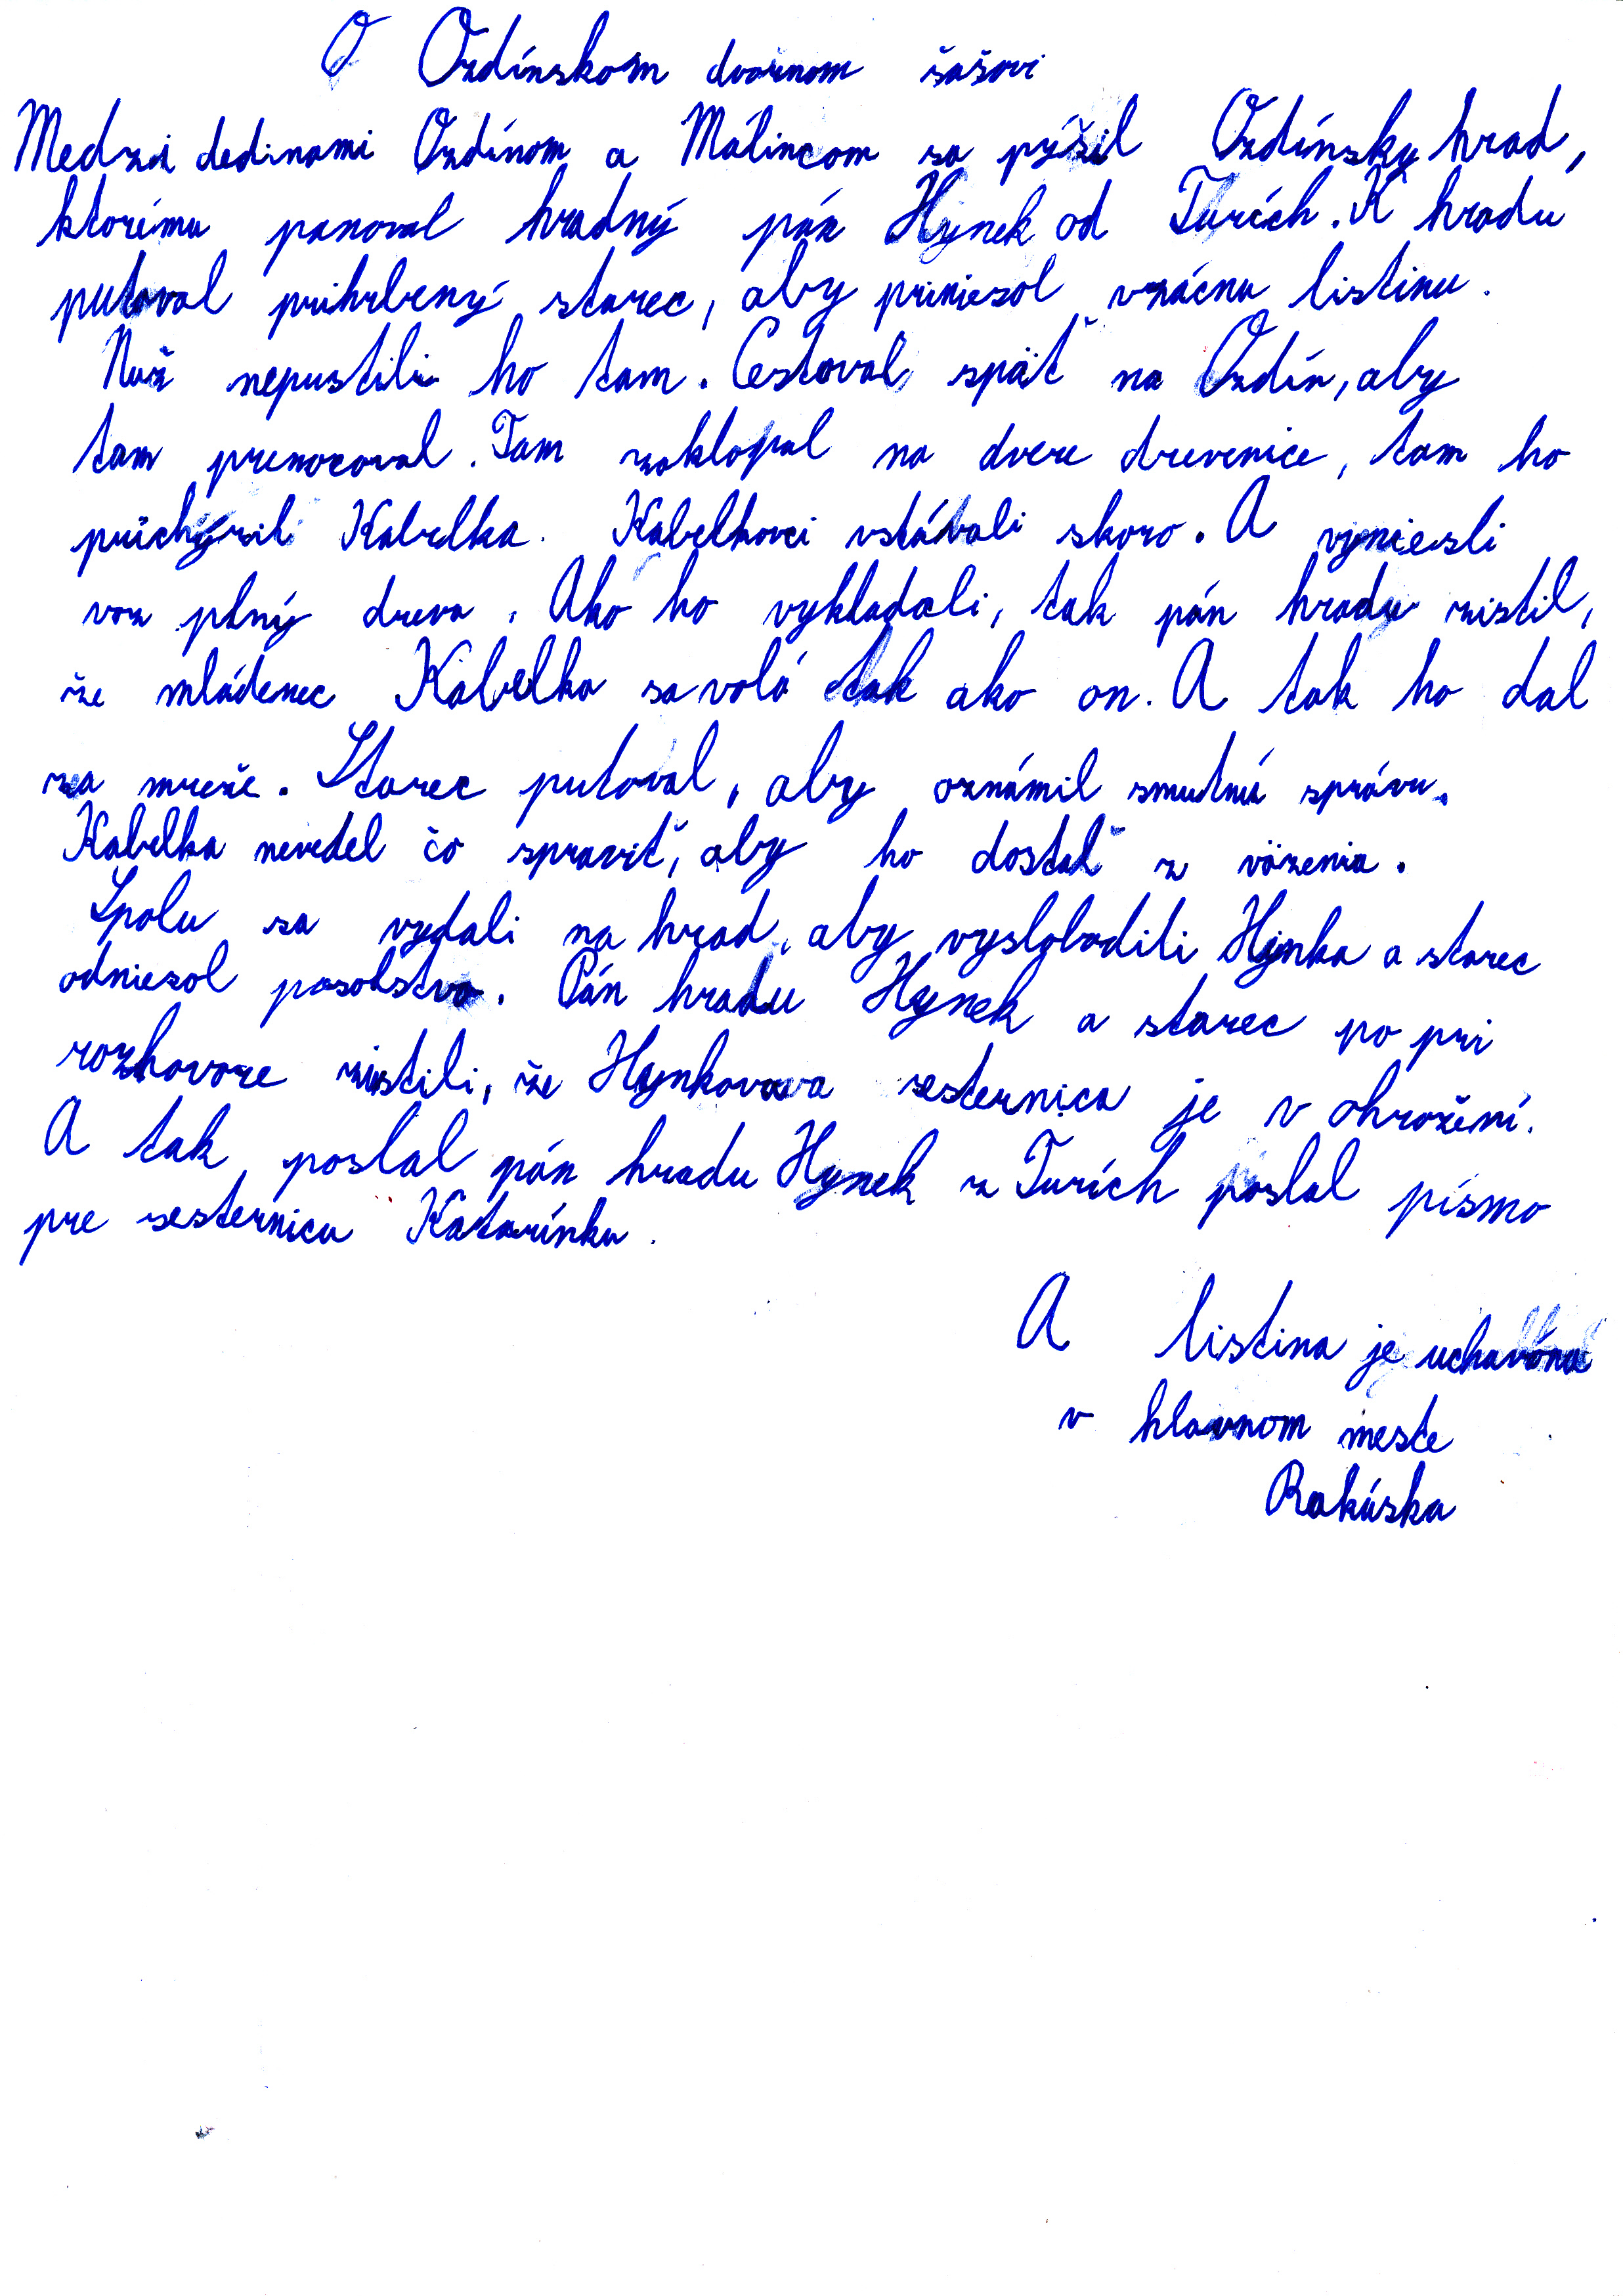 O Ozdínskom dvornom šašovi
Medzi dedinami Ozdínom a Málincom sa pýšil Ozdínsky hrad,
ktorému panoval hradný pán Hynek od Turích. K hradu
putoval prihrbený starec, aby priniesol vzácnu listinu.
Nuž nepustili ho tam. Cestoval späť na Ozdín, aby
tam prenocoval. Tam zaklopal na dvere drevenice, tam ho
prichýrili Kabelka. Kabelkovci vstávali skoro. A vyniesli
voz plný dreva. Ako ho vykladali, tak pán hradu zistil,
že mládenec Kabelka sa volá tak ako on. A tak ho dal
za mreže. Starec putoval, aby oznámil smutnú správu.
Kabelka nevedel čo spraviť, aby ho dostal z väzenia.
Spolu sa vydali na hrad, aby vyslobodili Hynka a starec
odniesol posolstvo. Pán hradu Hynek a starec po pri
rozhovore zistili, že Hynkovova sesternica je v ohrození.
A tak poslal pán hradu Hynek z Turích poslal písmo
pre sesternicu Katarínku.
A listina je uchavána
v hlavnom meste
Rakúska